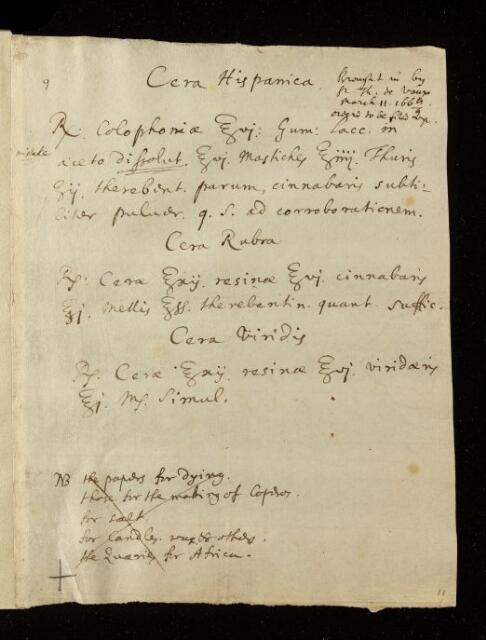 9
Cera Hispanica.
Brought in by
Sr. Th. de Vaux
March 11. 1668/9
ordered to be filed up.
℞. Colophoniæ ℥vj: Gum: Lacc. in
mistake
aceto dissolut. ℥vj. Mastiches ℥iiij. Thuris
℥ij. therebent. parum, cinnabaris subti-
liter pulver. q. S. ad corroborationem.
Cera Rubra
℞: Ceræ ℥xij. resinæ ℥vj. cinnabaris
℥j. Mellis ℥ss. therebentin. quant. suffic.
Cera Viridis
℞. Ceræ ℥xij. resinæ ℥vj. viridæris
℥j. M. Simul.
NB the papers for dying.
those for the making of Coperos.
for salt.
for candles. &amp; others.
the Quæries for Africa.
11